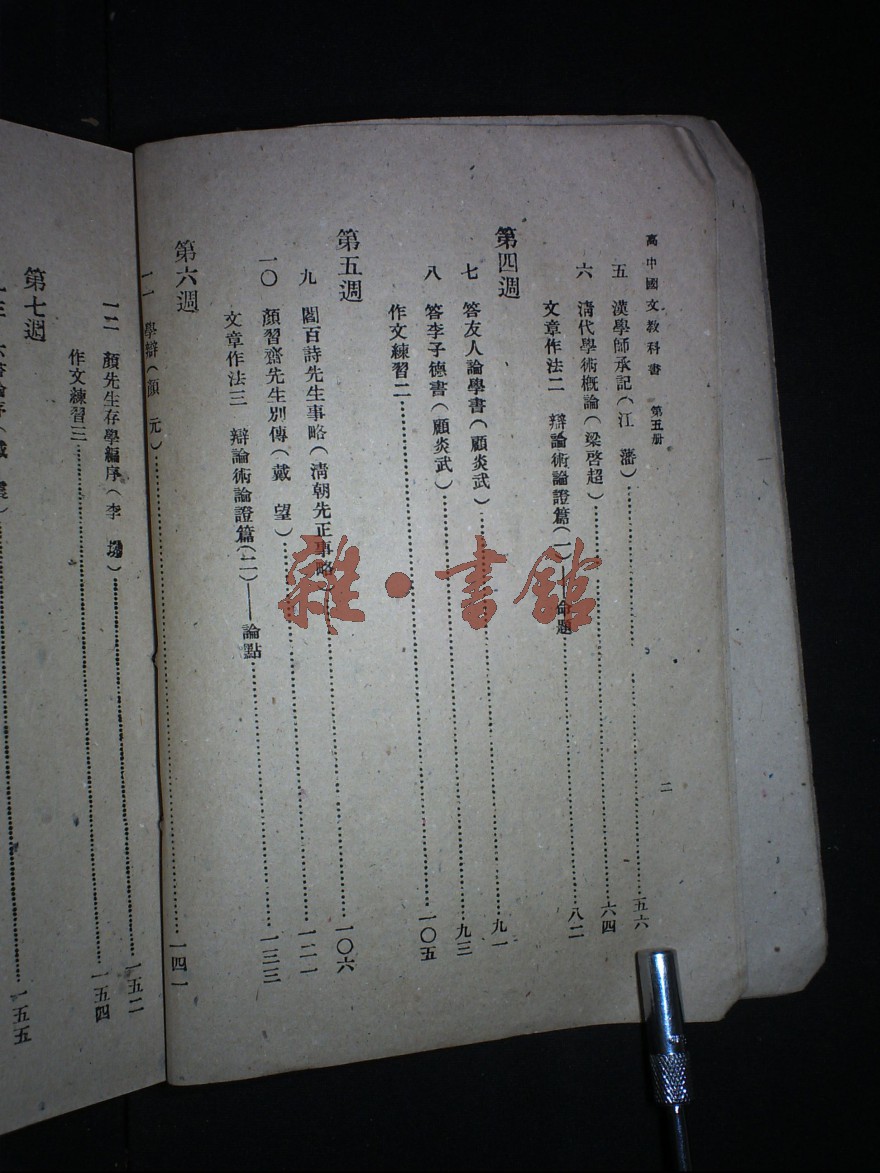 高中國文教科書 第五册
二
五 漢學師承記（江 藩）……五六
六 清代學術概論（梁啓超）……六四
文章作法二 辯論術論證篇（一）——命題……八二
第四週
七 答友人論學書（顧炎武）……九一
八 答李子德書（顧炎武）……九三
作文練習二……一〇五
第五週
九 閻百詩先生事略（清朝先正事略）……一〇六
一〇 顏習齋先生別傳（戴 望）……一二一
文章作法三 辯論術論證篇（二）——論點……一三三
第六週
一一 學辯（顏 元）……一四一
一二 顏先生存學編序（李 塨）……一五二
作文練習三……一五四
第七週
序（戴 震）……一五五
雜·書館